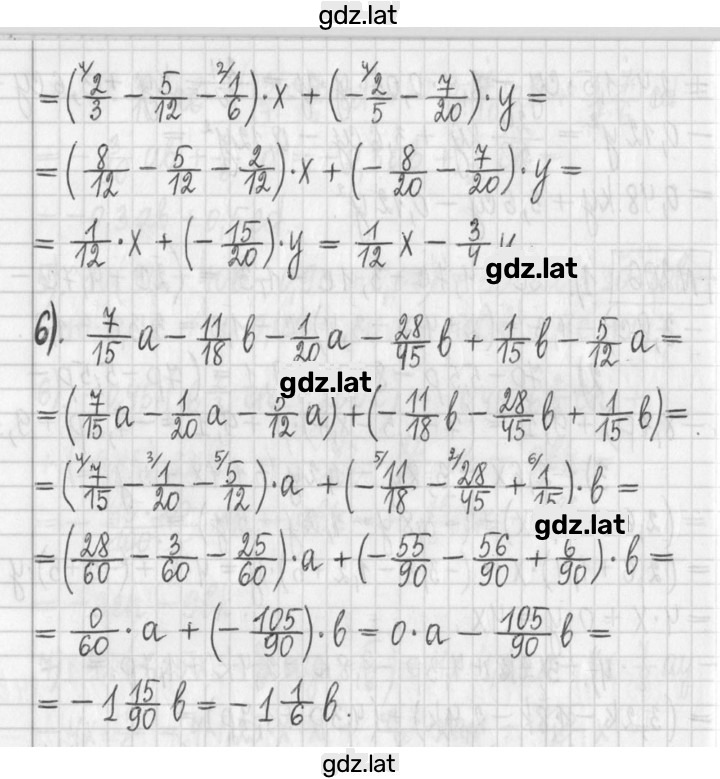 gdz.lat
= (⁴/2/3 − 5/12 − ²/1/6)·x + (−⁴/2/5 − 7/20)·y =
= (8/12 − 5/12 − 2/12)·x + (−8/20 − 7/20)·y =
= 1/12·x + (−15/20)·y = 1/12 x − 3/4
gdz.lat
б). 7/15 a − 11/18 b − 1/20 a − 28/45 b + 1/15 b − 5/12 a =
gdz.lat
= (7/15 a − 1/20 a − 5/12 a) + (−11/18 b − 28/45 b + 1/15 b) =
= (⁴/7/15 − ³/1/20 − ⁵/5/12)·a + (−⁵/11/18 − ²/28/45 + ⁶/1/15)·b =
gdz.lat
= (28/60 − 3/60 − 25/60)·a + (−55/90 − 56/90 + 6/90)·b =
= 0/60·a + (−105/90)·b = 0·a − 105/90 b =
= −1 15/90 b = −1 1/6 b.
gdz.lat